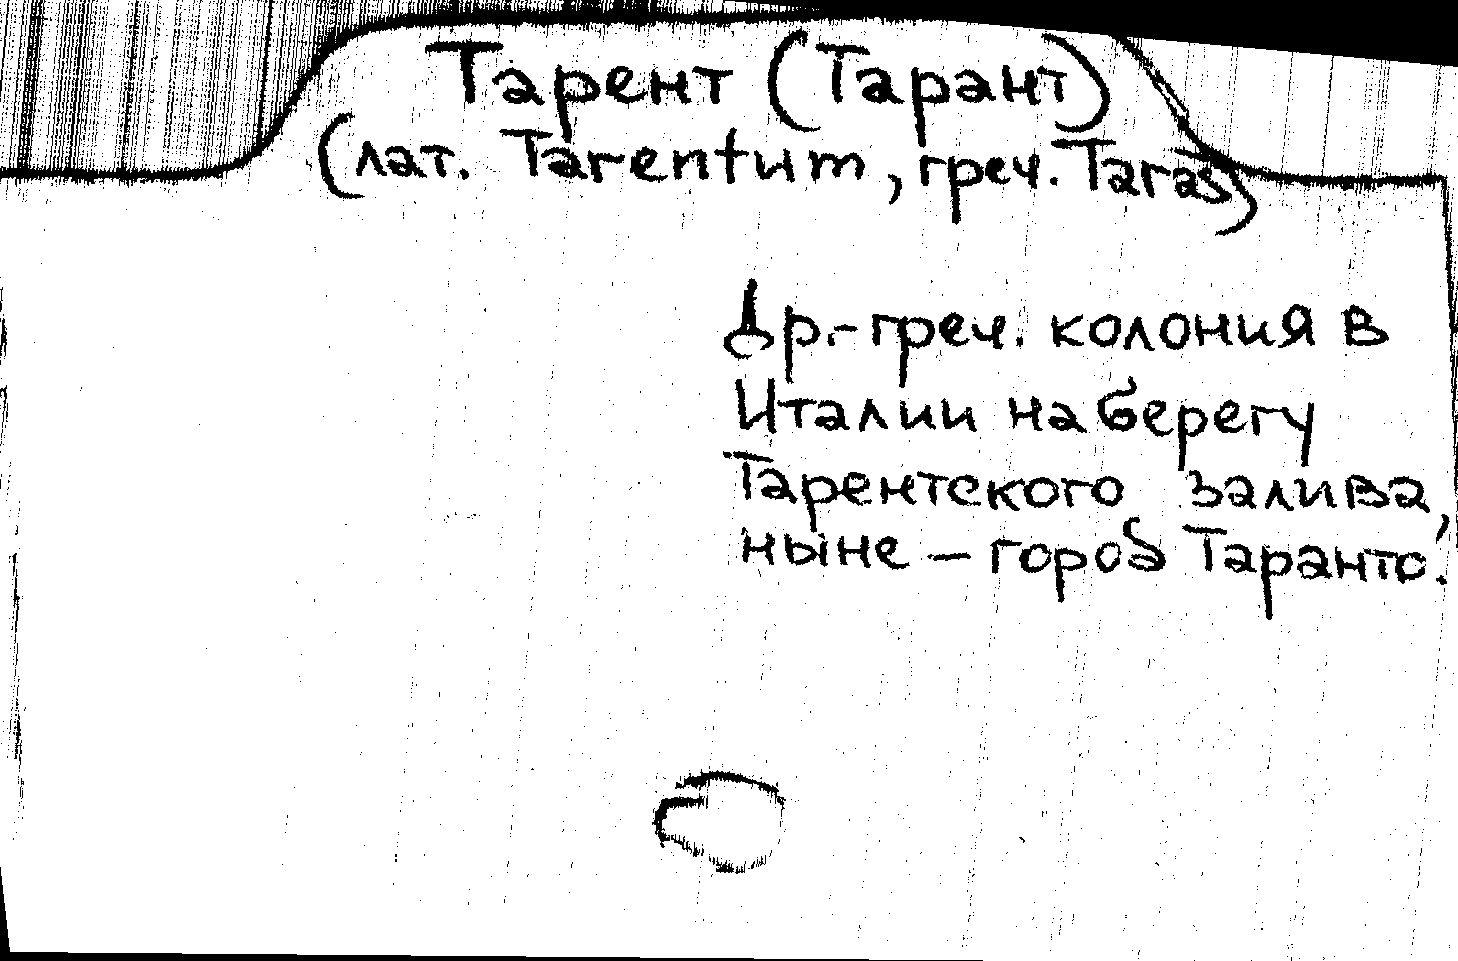 Тарент (Тарант)
(лат. Tarentum, греч. Taras)
Др.-греч. колония в
Италии на берегу
Тарентского залива,
ныне – город Таранто.